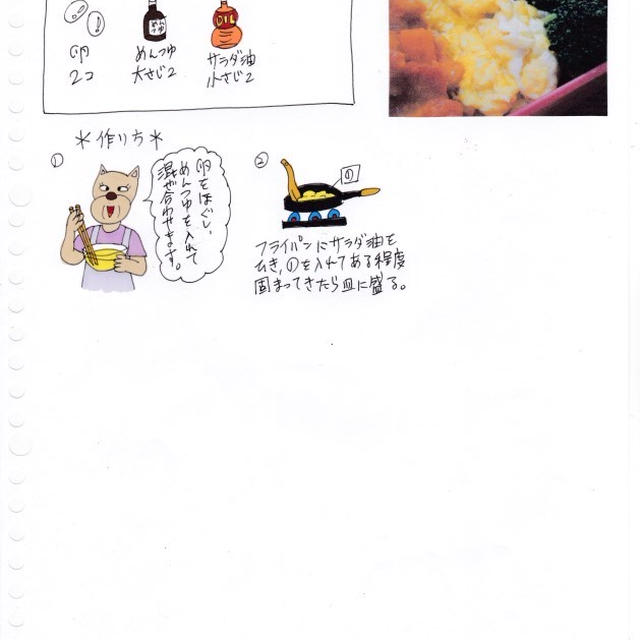 めん
つゆ
OIL
卵
2コ
めんつゆ
大さじ2
サラダ油
小さじ2
＊作り方＊
①
卵をほぐし、
めんつゆを入れて
混ぜ合わせます。
②
①
フライパンにサラダ油を
ひき、①を入れてある程度
固まってきたら皿に盛る。